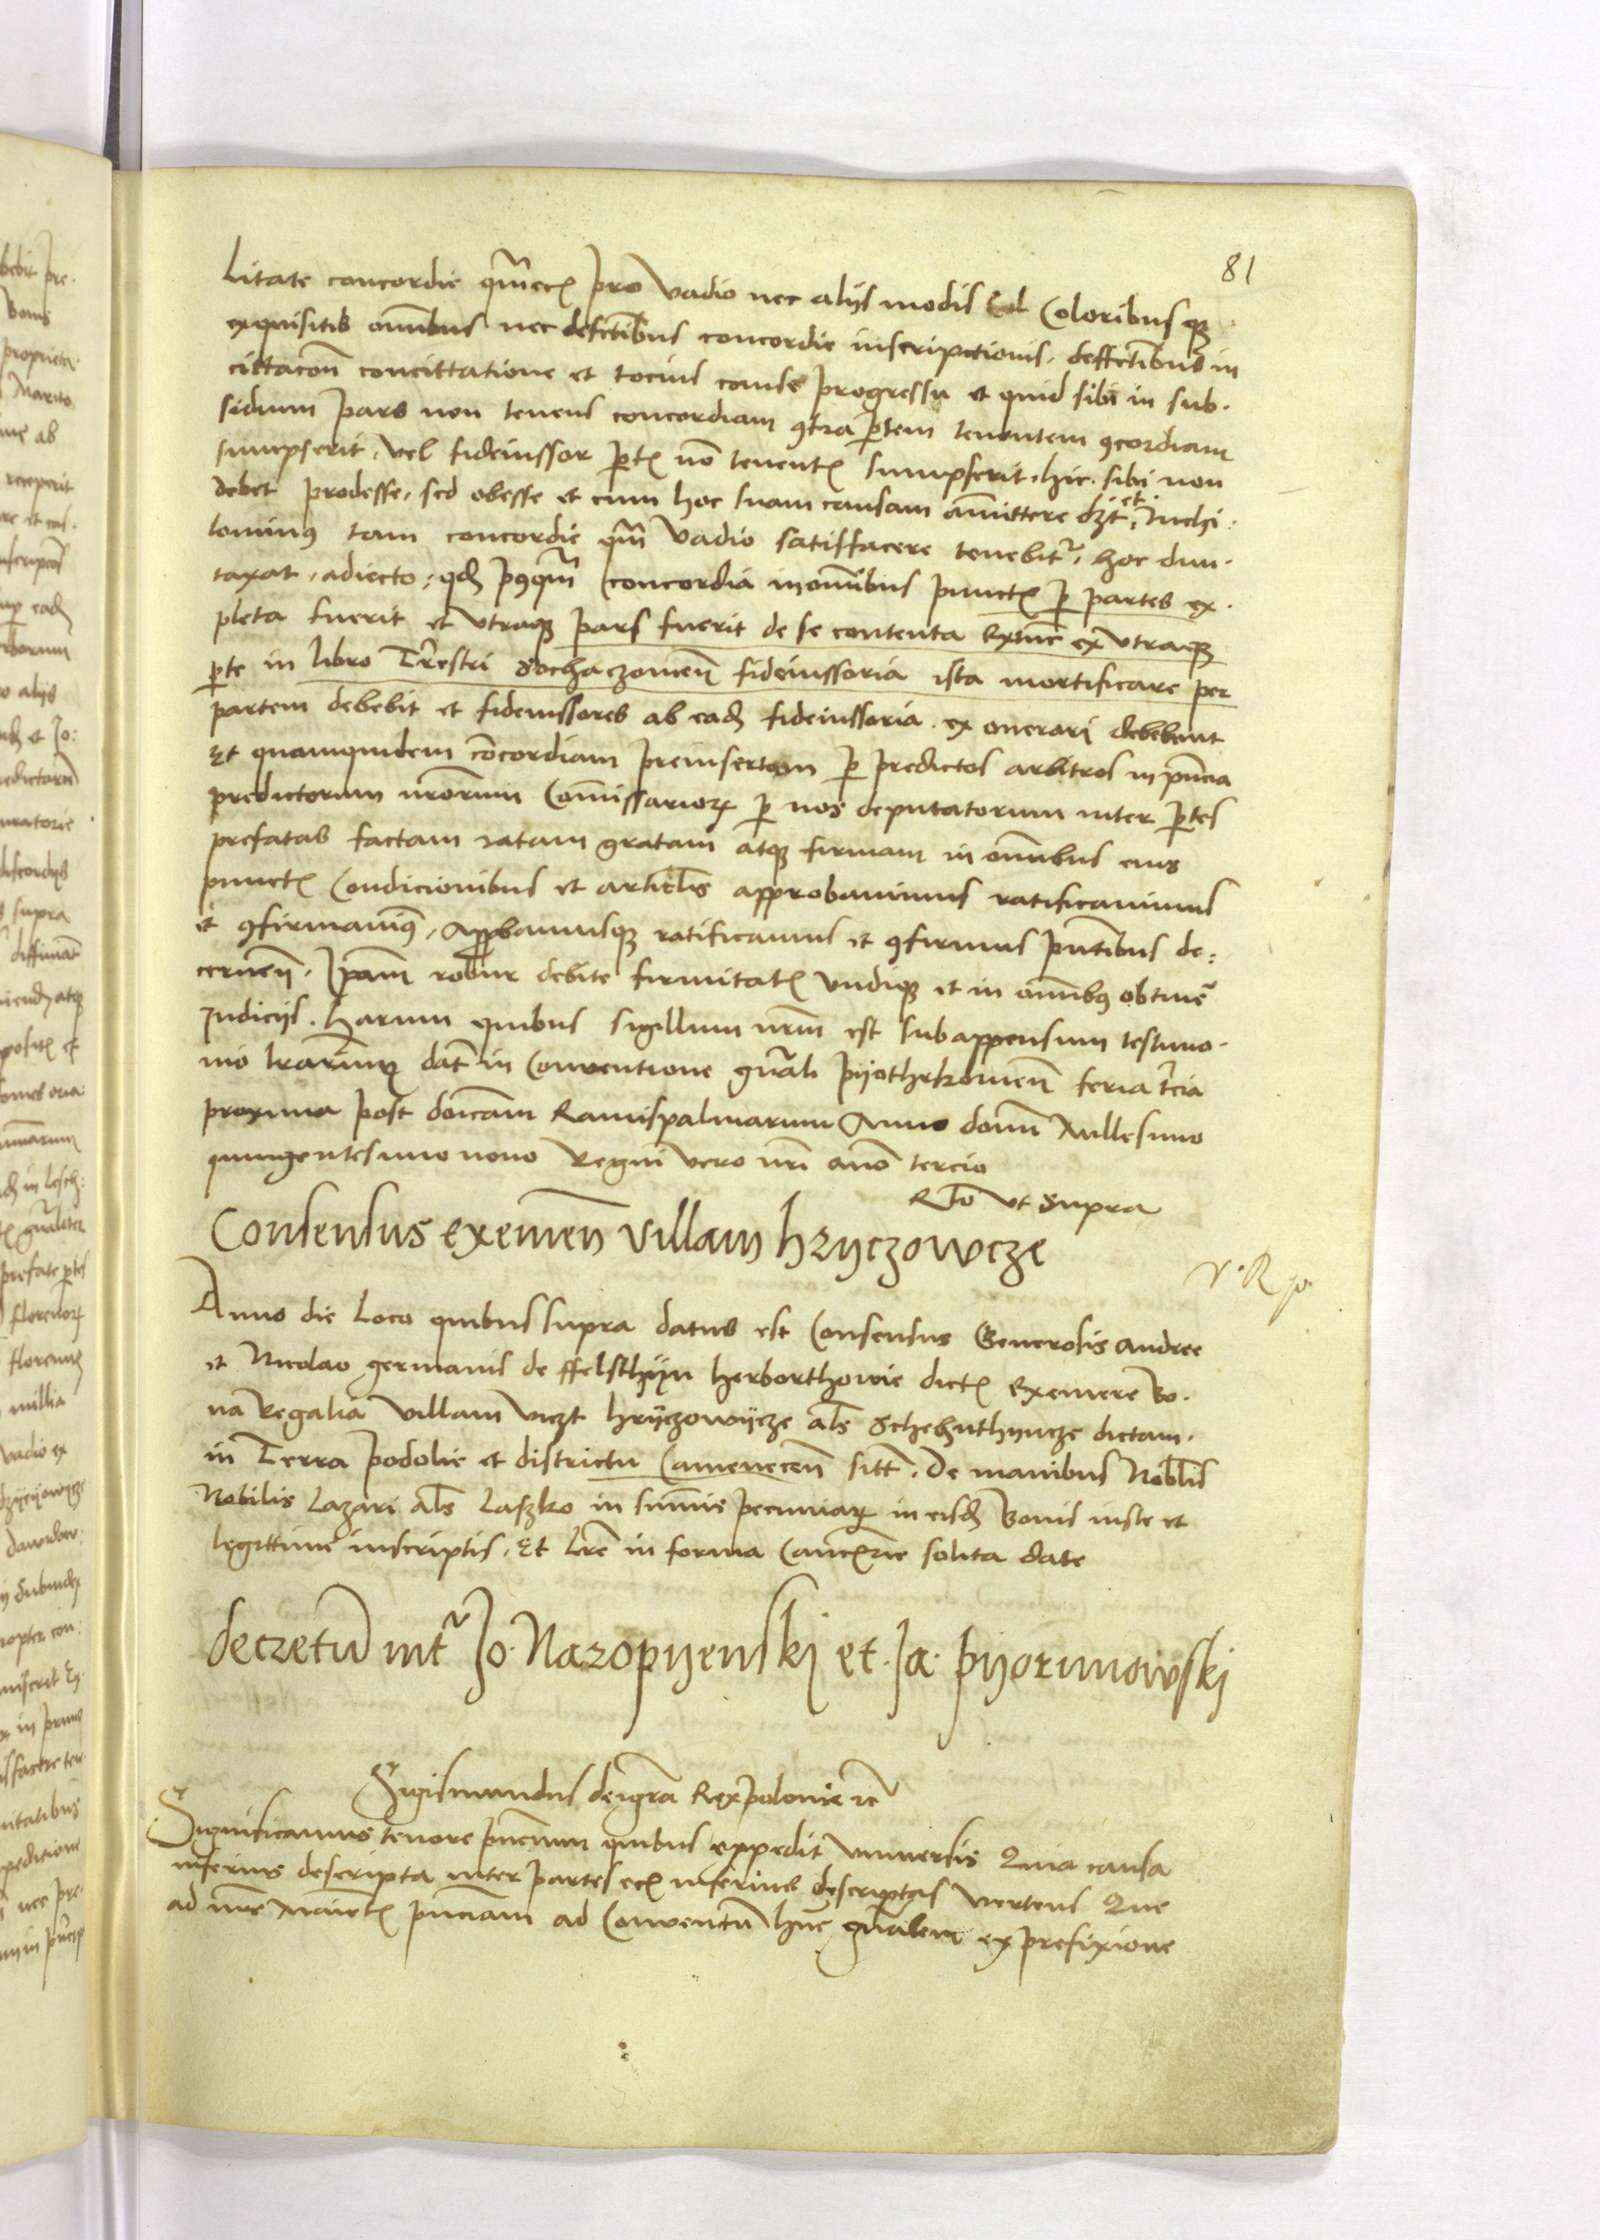 81
litate concordie qm̄ecꝫ pro vadio nec alijs modis vel Coloribus qꝫ
exquisitis om̄ibus nec defctībus concordie inscripctionis. deffctībus in
cittacōn concittatione et tocius cause progressu et quid sibi in sub-
sidium pars non tenens concordiam ꝯtra p̱tem tenentem ꝯcordiam
sumpserit, vel fideiussor p̱tꝭ nō tenentꝭ sumpserit, hic sibi non
debet prodesse, sed obesse et cum hoc suam causam am̄ittere dꝫt et Nichi-
lominꝰ tam concordie qm̄ vadio satisfacere tenebitr̄, hoc dun-
taxat, adiecto, qd̄ pꝰqm̄ concordia in om̄ibus punctꝭ p̱ partes ex-
pleta fuerit et vtraqꝫ pars fuerit de se contenta Extunc ex vtraqꝫ
p̱te in libro Tr̄estri Sochaczouien̄ fideiussoria ista mortificare per
partem debebit et fideiussores ab ead̄ fideiussoria ex onerari debebunt
Et quamquidem cōcordiam preinsertam p̱ predictos arbitros in pn̄cia
predictorum nr̄orum Com̄issarioꝝ p̱ nos deputatorum inter p̱tes
prefatas factam ratam gratam atqꝫ firmam in om̄ibus eius
punctꝭ Condicionibus et articl̄is approbauimus ratificauimus
et ꝯfirmauimꝰ, App̱bamusqꝫ ratificamus et ꝯfirmus pn̄tibus de-
cernen̄. Ip̄am robur debite firmitatꝭ vndiqꝫ et in om̄ibꝰ obtinē
Iudicijs. Harum quibus sigillum nr̄m est subappensum testimo-
nio lr̄arum dat̄ in Conuentione gn̄ali pijothrkouien̄ feria t̄cia
proxima post doīcam Ramispalmarum Anno domī Millesimo
quingentesimo nono Regni vero nr̄i an̄o tercio
Rtō vt Supra
Consensus exemen̄ villam hryczowcze
V. R
Anno die loco quibussupra datus est Consensus Generosis Andree
et Nicolao germanis de ffelsthijn herborthowie dictꝭ Exemere bo-
na Regalia villam vicꝫt hrijczowijcze al̄s Schehuthyncze dictam,
in Terra podolie et districtu Camenecen̄ sitt̄. De manibus Nobl̄is
Nobilis Lazari al̄s Laszko in sum̄is pecuniaꝝ in eisd̄ bonis iuste et
legittime inscriptis. Et lr̄e in forma Cancr̄ie solita date
decretū int̄ Jo. Naropijenskj et. Ja. pijorunowskj
Sigismundus deigr̄a Rexpolonie ꝛc̄
Significamus tenore pn̄cium quibus expedit vniuersis Quia causa
inferius descripta inter partes ecꝭ inferius descriptas vertens Que
ad nr̄e Maiestꝭ pn̄ciam ad Conuentū hūc gn̄alem ex prefixione